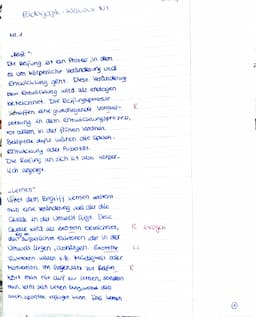 Pädagogik-Klausur Nr. 1
Nr. 1
„Reife“:
Die Reifung ist ein Prozess, in dem
es um körperliche Veränderung und
Entwicklung geht. Diese Veränderung
bzw. Entwicklung wird als endogen
bezeichnet. Die Reifungsprozesse
schaffen eine grundlegende Voraus- R
setzung in dem Entwicklungsprozess,
vor allem in der frühen Kindheit.
Beispiele dafür wären die Sprach-
entwicklung oder Pubertät.
Die Reifung an sich ist also körper-
lich angelegt.
„Lernen“
Unter dem Begriff Lernen versteht
man eine Veränderung, bei der die
Quelle in der Umwelt liegt. Diese
Quelle wird als exogen bezeichnet, R exogen
äußerlichen Faktoren der in der
Umwelt liegen, abhängen.
Faktoren wären z.B. Müdigkeit oder
Motivation. Im Gegensatz zur Reifung R
hört man nie auf zu lernen, sondern
man lernt sein Leben lang
auch spontan erfolgen kann. Das Lernen
1